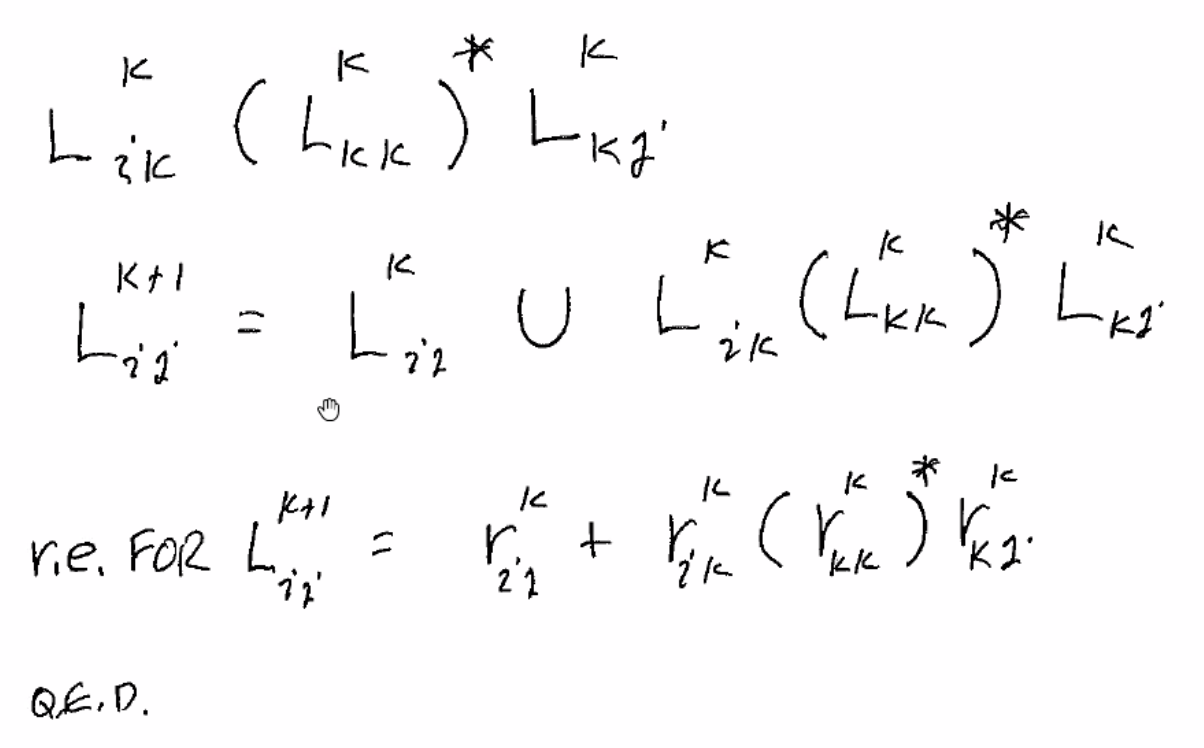 L_{ik}^{k} (L_{kk}^{k})^{*} L_{kj}^{k}
L_{ij}^{k+1} = L_{ij}^{k} ∪ L_{ik}^{k} (L_{kk}^{k})^{*} L_{kj}^{k}
r.e. FOR L_{ij}^{k+1} = r_{ij}^{k} + r_{ik}^{k} (r_{kk}^{k})^{*} r_{kj}^{k}
Q.E.D.